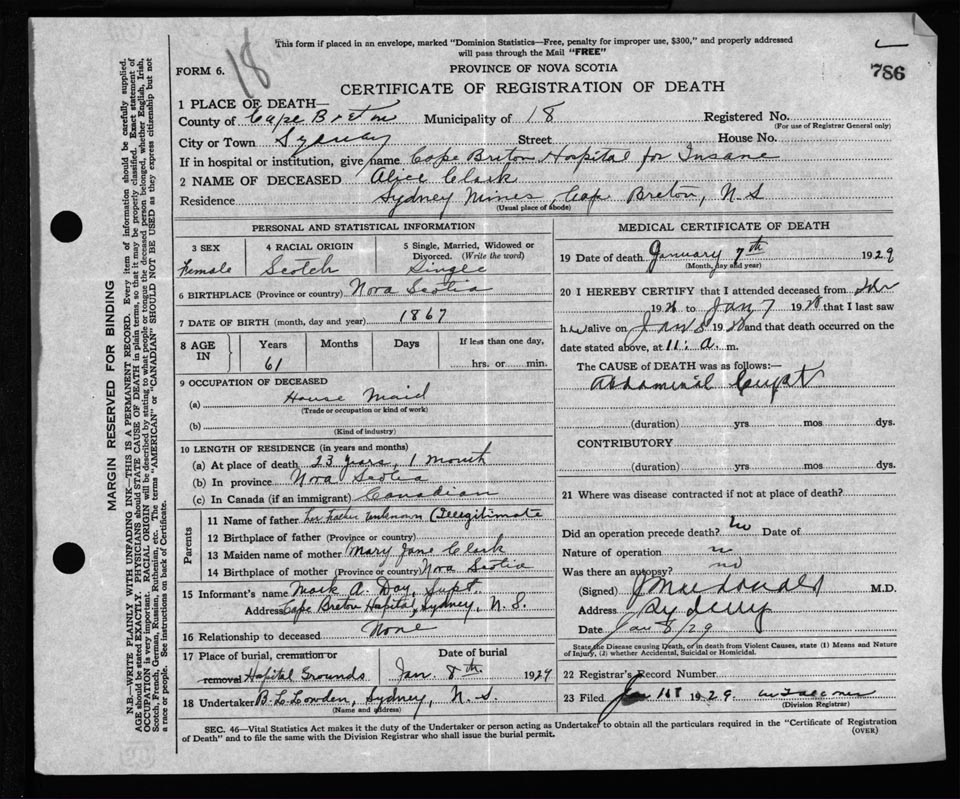 This form if placed in an envelope, marked "Dominion Statistics—Free, penalty for improper use, $300," and properly addressed
will pass through the Mail "FREE"
18
786
FORM 6.
PROVINCE OF NOVA SCOTIA
CERTIFICATE OF REGISTRATION OF DEATH
1 PLACE OF DEATH—
County of Cape Breton Municipality of 18 Registered No.
(For use of Registrar General only)
City or Town Sydney Street House No.
If in hospital or institution, give name Cape Breton Hospital for Insane
2 NAME OF DECEASED Alice Clark
Residence Sydney Mines, Cape Breton, N.S
(Usual place of abode)
PERSONAL AND STATISTICAL INFORMATION
3 SEX 4 RACIAL ORIGIN 5 Single, Married, Widowed or Divorced. (Write the word)
Female Scotch Single
6 BIRTHPLACE (Province or country) Nova Scotia
7 DATE OF BIRTH (month, day and year) 1867
8 AGE IN Years Months Days If less than one day,
61 hrs. or min.
9 OCCUPATION OF DECEASED
(a) House Maid
(Trade or occupation or kind of work)
(b)
(Kind of industry)
10 LENGTH OF RESIDENCE (in years and months)
(a) At place of death 23 years, 1 month
(b) In province Nova Scotia
(c) In Canada (if an immigrant) Canadian
Parents
11 Name of father her father unknown (Illegitimate
12 Birthplace of father (Province or country)
13 Maiden name of mother Mary Jane Clark
14 Birthplace of mother (Province or country) Nova Scotia
15 Informant's name Mark A. Day, Supt.
Address Cape Breton Hapital, Sydney, N.S.
16 Relationship to deceased None
17 Place of burial, cremation or removal Date of burial
Hapital Grounds Jan. 8th 1929
18 Undertaker B. L. Lowden, Sydney, N.S.
(Name and address)
MEDICAL CERTIFICATE OF DEATH
19 Date of death January 7th 1929
(Month, day and year)
20 I HEREBY CERTIFY that I attended deceased from
192 to Jan 7 192 that I last saw
h alive on Jan 192 and that death occurred on the
date stated above, at 11: a. m.
The CAUSE OF DEATH was as follows:—
Abdominal
(duration) yrs mos dys.
CONTRIBUTORY
(duration) yrs mos dys.
21 Where was disease contracted if not at place of death?
Did an operation precede death? no Date of
Nature of operation no
Was there an autopsy? no
(Signed) J Macdonald M.D.
Address Sydney
Date Jan 8/29
State the Disease causing Death, or in death from Violent Causes, state (1) Means and Nature
of Injury, (2) whether Accidental, Suicidal or Homicidal.
22 Registrar's Record Number
23 Filed Jan 1929
(Division Registrar)
SEC. 46—Vital Statistics Act makes it the duty of the Undertaker or person acting as Undertaker to obtain all the particulars required in the "Certificate of Registration
of Death" and to file the same with the Division Registrar who shall issue the burial permit.
(OVER)
MARGIN RESERVED FOR BINDING
N.B.—WRITE PLAINLY WITH UNFADING INK—THIS IS A PERMANENT RECORD. Every item of information should be carefully supplied.
AGE should be stated EXACTLY. PHYSICIANS should STATE CAUSE OF DEATH in plain terms, so that it may be properly classified. Exact statement of
OCCUPATION is very important. RACIAL ORIGIN will be described by stating to what people or tongue the deceased person belonged, whether English, Irish,
Scotch, French, German, Russian, Ruthenian, etc. The terms "AMERICAN" or "CANADIAN" SHOULD NOT BE USED as they express citizenship but not
a race or people. See instructions on back of Certificate.